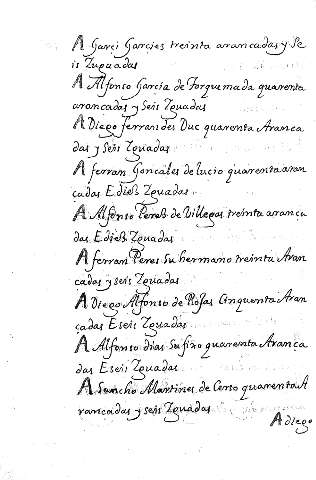 A Garci Garcies treinta arancadas y Se
is Zuguadas
A Alfonso Garcia de Torquemada quarenta
arancadas y Seis Zguadas
A Diego ferrandes Duc quarenta Aranca
das y Seis Zguadas
A ferran Goncales de lucio quarenta aran
cadas E diesz Zguadas
A Alfonso Peres de Villegas treinta aranca
das E diesz Zguadas
A ferran Peres Su hermano treinta Aran
cadas y seis Zguadas
A Diego Alfonso de Rojas Cinquenta Aran
cadas E seis Zguadas
A Alfonso dias Su fixo quarenta Aranca
das E seis Zguadas
A Sancho Martines de quarenta A
rancadas y seis Zguadas
A diego